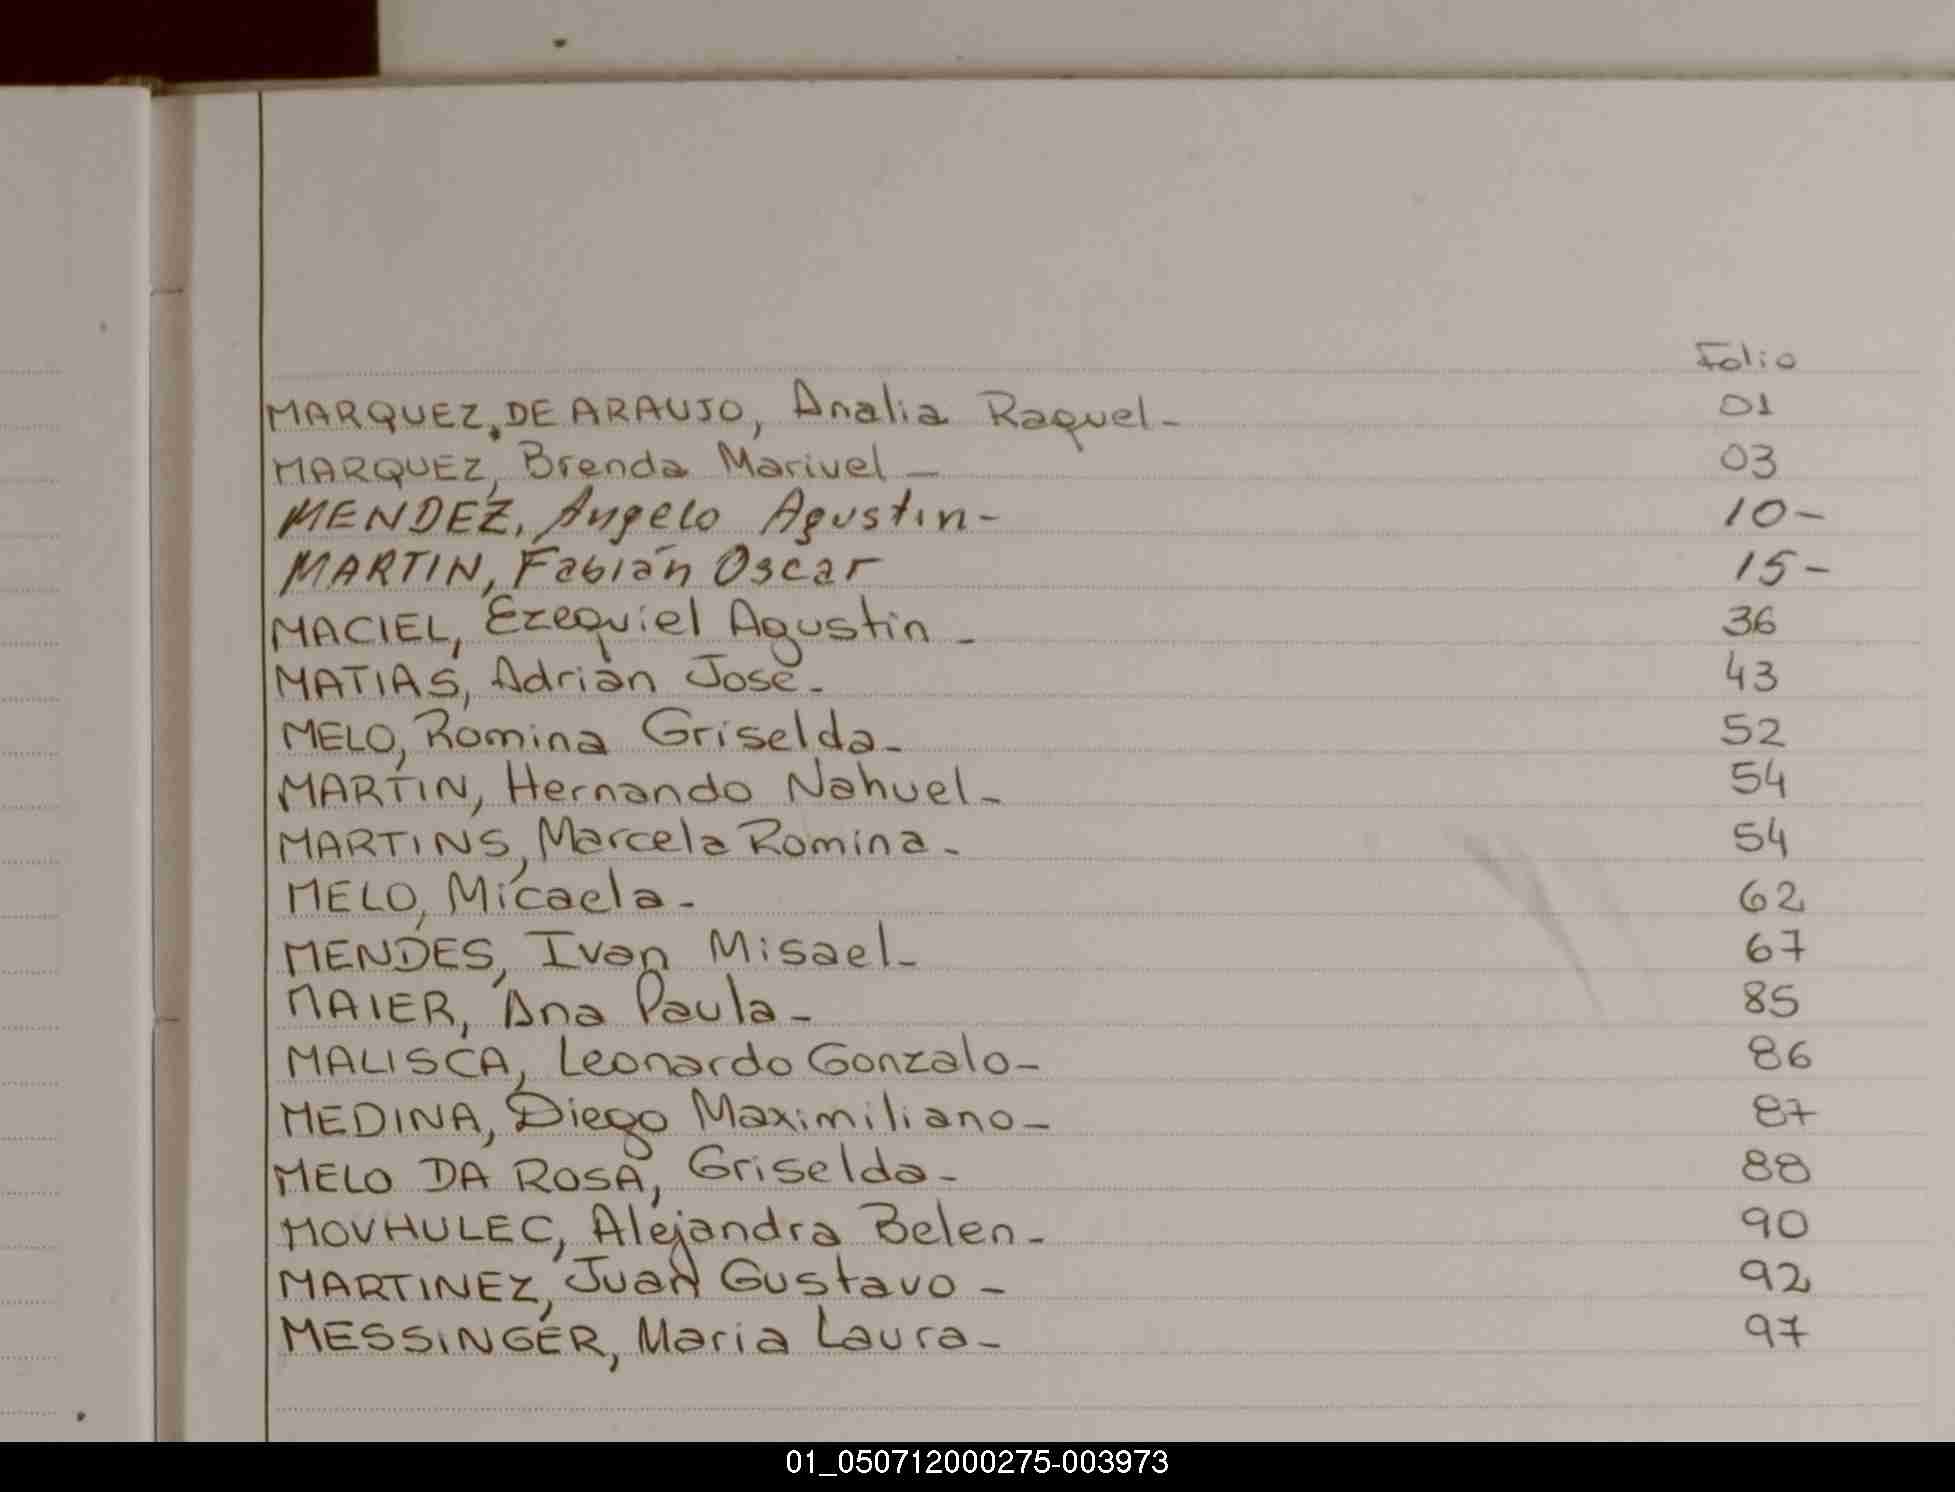 Folio
MARQUEZ, DE ARAUJO, Analia Raquel- 01
MARQUEZ, Brenda Marivel - 03
MENDEZ, Angelo Agustin- 10-
MARTIN, Fabián Oscar 15-
MACIEL, Ezequiel Agustin - 36
MATIAS, Adrián José- 43
MELO, Romina Griselda- 52
MARTIN, Hernando Nahuel- 54
MARTINS, Marcela Romina- 54
MELO, Micaela- 62
MENDES, Ivan Misael- 67
MAIER, Ana Paula- 85
MALISCA, Leonardo Gonzalo- 86
MEDINA, Diego Maximiliano- 87
MELO DA ROSA, Griselda- 88
MOVHULEC, Alejandra Belen- 90
MARTINEZ, Juan Gustavo - 92
MESSINGER, Maria Laura- 97
01_050712000275-003973